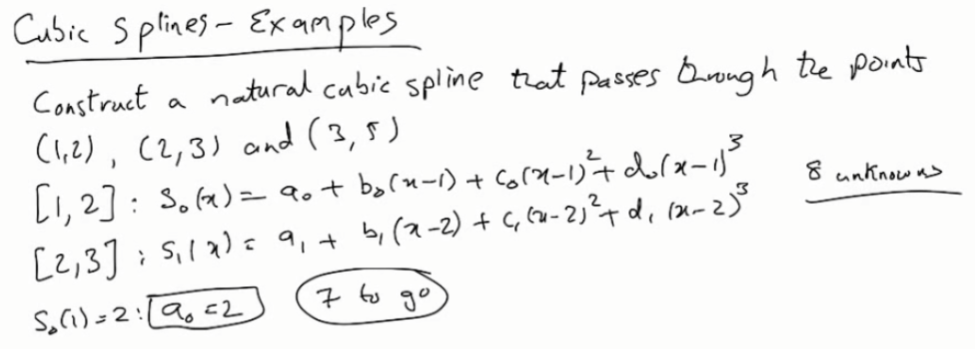 Cubic Splines - Examples
Construct a natural cubic spline that passes through the points
(1,2), (2,3) and (3,5)
[1,2]: S₀(x) = a₀ + b₀(x-1) + c₀(x-1)² + d₀(x-1)³ 8 unknowns
[2,3]: S₁(x) = a₁ + b₁(x-2) + c₁(x-2)² + d₁(x-2)³
S₀(1)=2: a₀=2 7 to go